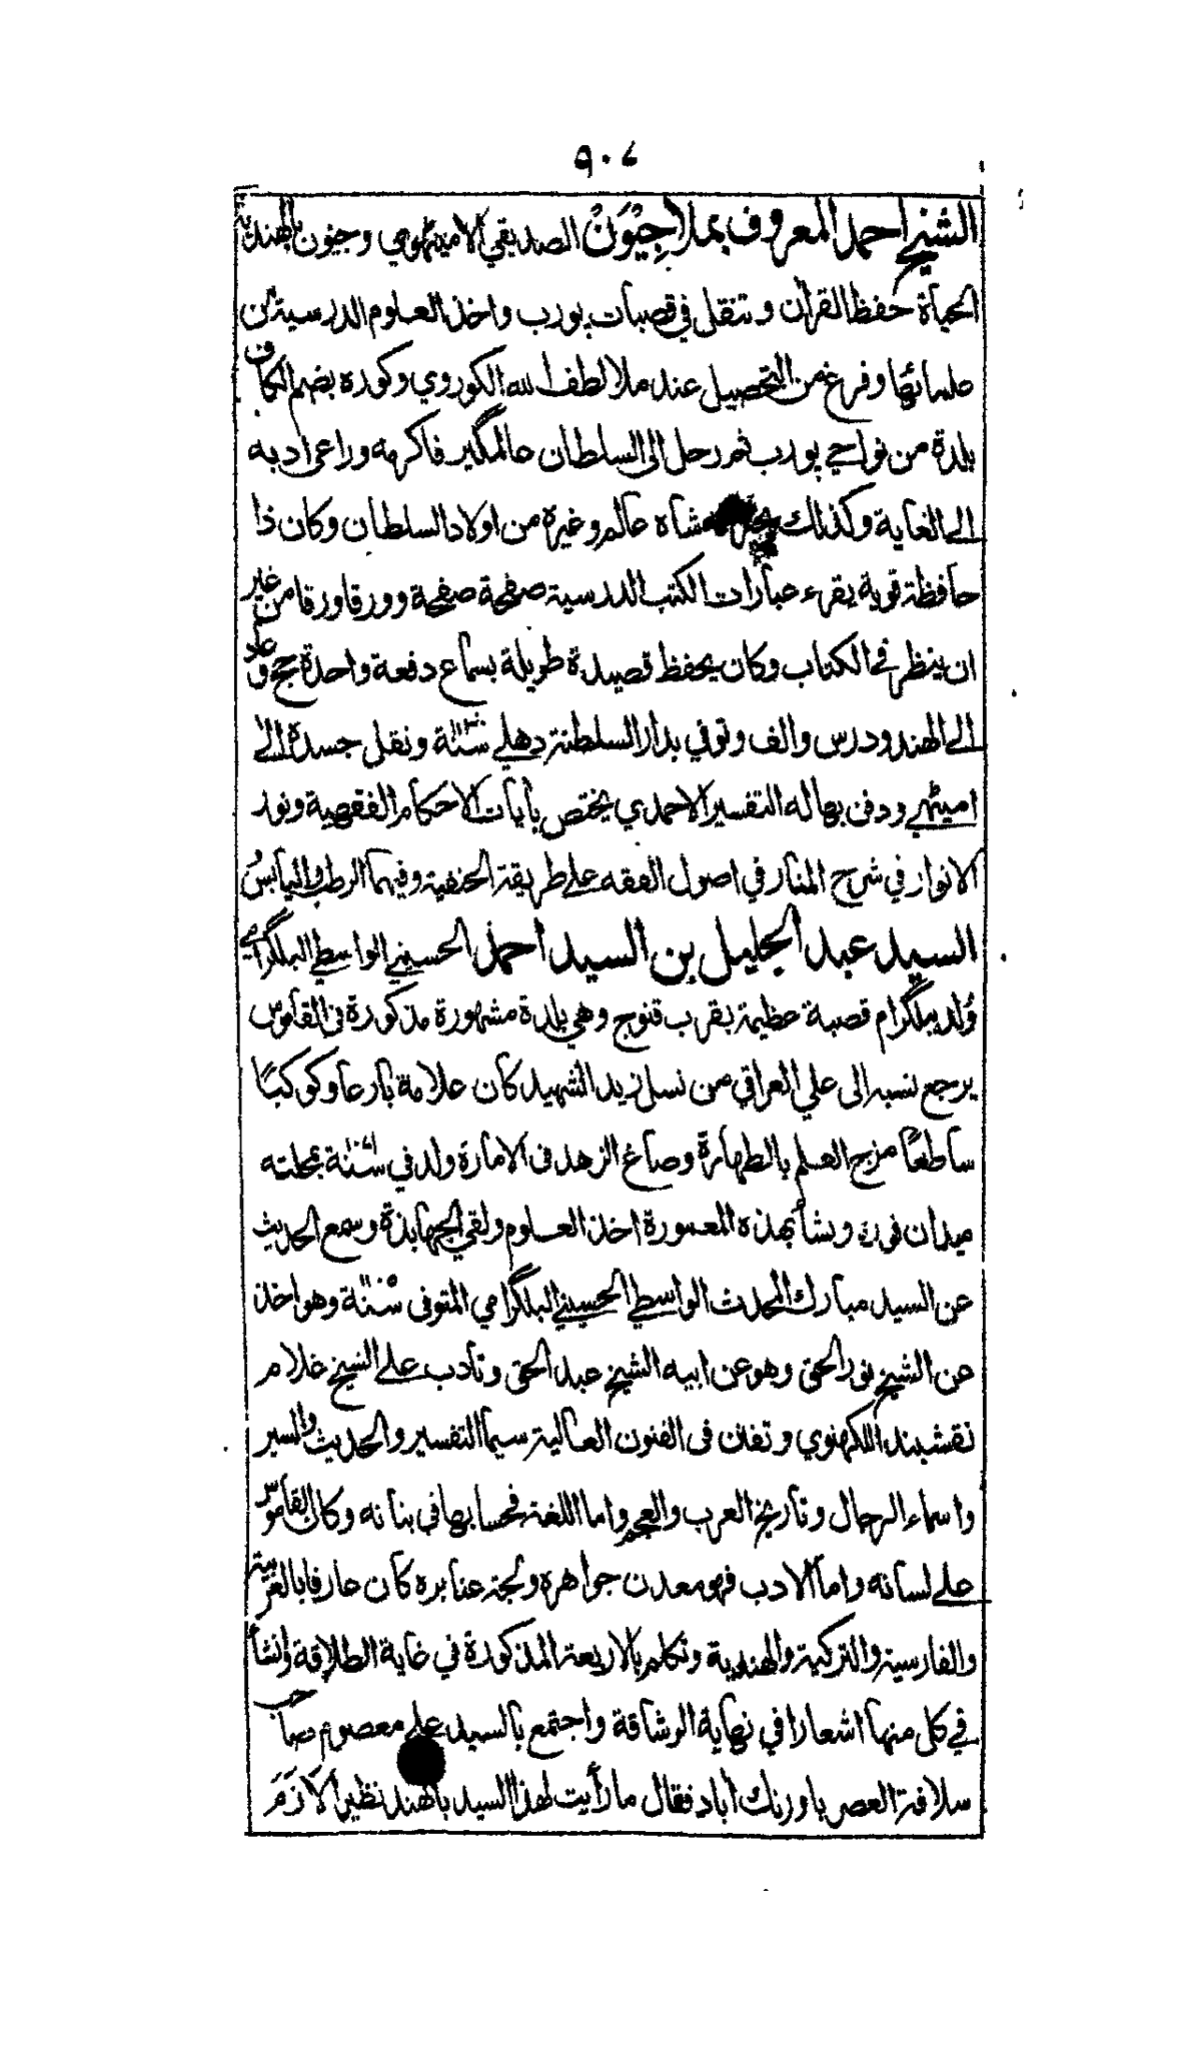 ٩٠٧
الشيخ احمد المعروف بملا جِيْوَنْ الصديقي الاميتهوي وجيون بالهندية
الحياة حفظ القرآن وتنقل في قصبات پورب واخذ العلوم الدرسية من
علمائها وفرغ من التحصيل عند ملا لطف الله الكوروي وكوره بضم الكاف
بلدة من نواحي پورب ثم رحل الى السلطان عالمگير فاكرمه وراعى ادبه
الى الغاية وكذلك شاه عالم وغيره من اولاد السلطان وكان ذا
حافظة قوية يقرء عبارات الكتب الدرسية صفحة صفحة وورقا ورقا من غير
ان ينظر في الكتاب وكان يحفظ قصيدة طويلة بسماع دفعة واحدة حج وعاد
الى الهند ودرس والف وتوفي بدار السلطنة دهلي سنة ونقل جسده الى
اميتهي ودفن بها له التفسير الاحمدي يختص بآيات الاحكام الفقهية ونور
الانوار في شرح المنار في اصول الفقه على طريقة الحنفية وفيهما الرطب واليابسُ
السيد عبد الجليل بن السيد احمد الحسيني الواسطي البلگرامي
وُلد ببلگرام قصبة عظيمة بقرب قنوج وهي بلدة مشهورة مذكورة في القاموس
يرجع نسبه الى علي العراقي من نسل زيد الشهيد كان علامة بارعا وكوكبًا
ساطعًا مزج العلم بالطهارة وصاغ الزهد في الامارة ولد في سنة بمحلته
ميدان فوره ونشأ بهذه المعمورة اخذ العلوم ولقي الجهابذة وسمع الحديث
عن السيد مبارك المحدث الواسطي الحسيني البلگرامي المتوفى سنة وهو اخذ
عن الشيخ نور الحق وهو عن ابيه الشيخ عبد الحق وتأدب على الشيخ غلام
نقشبند اللكهنوي وتفنن في الفنون العالية سيما التفسير والحديث والسير
واسماء الرجال وتاريخ العرب والعجم واما اللغة فحسابها في بنانه وكان القاموس
على لسانه واما الادب فهو معدن جواهره ولجة عنابره كان عارفا بالعربية
والفارسية والتركية والهندية وتكلم بالاربعة المذكورة في غاية الطلاقة وانشأ
في كل منها اشعارا في نهاية الرشاقة واجتمع بالسيد علي معصوم صاحب
سلافة العصر باورنك آباد فقال ما رأيت لهذا السيد بالهند نظيرا لَازَمَ